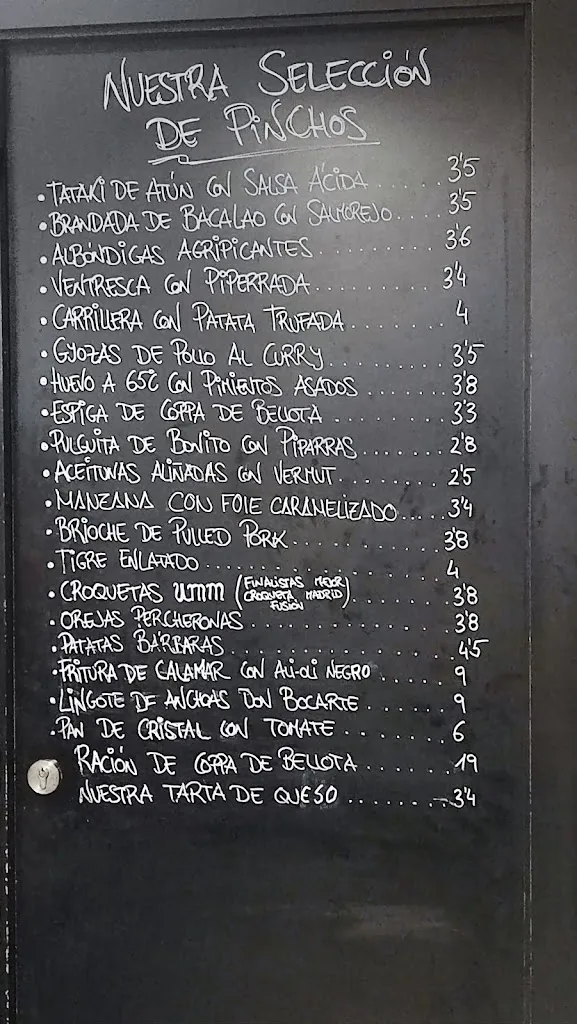 NUESTRA SELECCIÓN
DE PINCHOS
• TATAKI DE ATÚN CON SALSA ÁCIDA ...... 3'5
• BRANDADA DE BACALAO CON SALMOREJO .... 3'5
• ALBÓNDIGAS AGRIPICANTES ......... 3'6
• VENTRESCA CON PIPERRADA ......... 3'4
• CARRILLERA CON PATATA TRUFADA ........ 4
• GYOZAS DE POLLO AL CURRY ......... 3'5
• HUEVO A 65º CON PIMIENTOS ASADOS ....... 3'8
• ESPIGA DE COPPA DE BELLOTA ......... 3'3
• PULGUITA DE BONITO CON PIPARRAS ....... 2'8
• ACEITUNAS ALIÑADAS CON VERMUT ........ 2'5
• MANZANA CON FOIE CARAMELIZADO ..... 3'4
• BRIOCHE DE PULLED PORK .......... 3'8
• TIGRE ENLATADO ................ 4
• CROQUETAS umm (FINALISTAS MEJOR
CROQUETA MADRID
FUSIÓN) ........ 3'8
• OREJAS PERCHERONAS ............. 3'8
• PATATAS BÁRBARAS ............. 4'5
• FRITURA DE CALAMAR CON ALI-OLI NEGRO ...... 9
• LINGOTE DE ANCHOAS DON BOCARTE ....... 9
• PAN DE CRISTAL CON TOMATE ........ 6
RACIÓN DE COPPA DE BELLOTA ....... 19
NUESTRA TARTA DE QUESO ......... 3'4